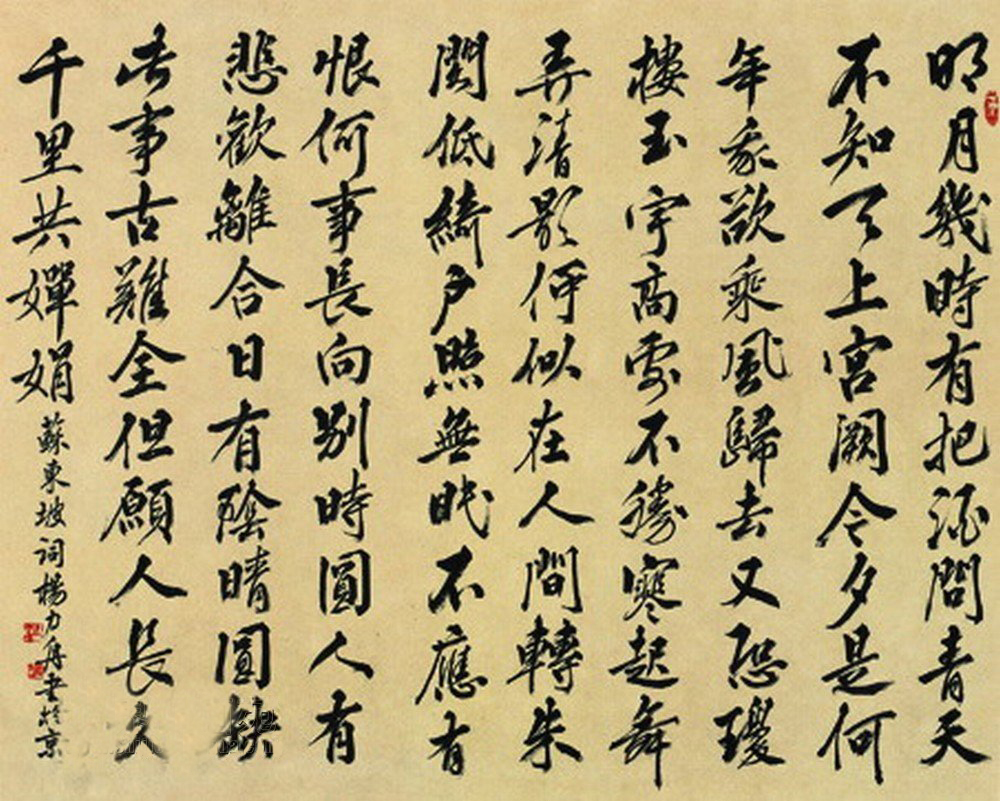 明月幾時有把酒問青天
不知天上宮闕今夕是何
年我欲乘風歸去又恐瓊
樓玉宇高處不勝寒起舞
弄清影何似在人間轉朱
閣低綺戶照無眠不應有
恨何事長向别時圓人有
悲歡離合日有陰晴圓缺
此事古難全但願人長久
千里共嬋娟
蘇東坡詞楊力舟書於京